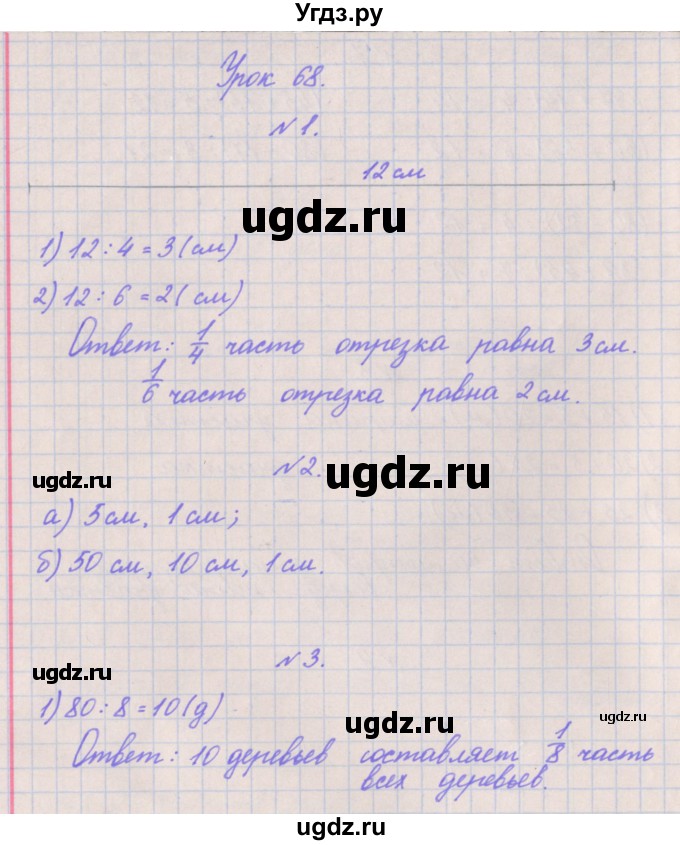 Угдз.ру
Урок 68.
N 1.
12 см
ugdz.ru
1) 12 : 4 = 3 (см)
2) 12 : 6 = 2 (см)
Ответ: 1/4 часть отрезка равна 3 см.
1/6 часть отрезка равна 2 см.
N 2.
ugdz.ru
ugdz.ru
а) 5 см, 1 см;
б) 50 см, 10 см, 1 см.
N 3.
ugdz.ru
1) 80 : 8 = 10 (д)
ugdz.ru
ugdz.ru
Ответ: 10 деревьев составляет 1/8 часть
всех деревьев.
ugdz.ru